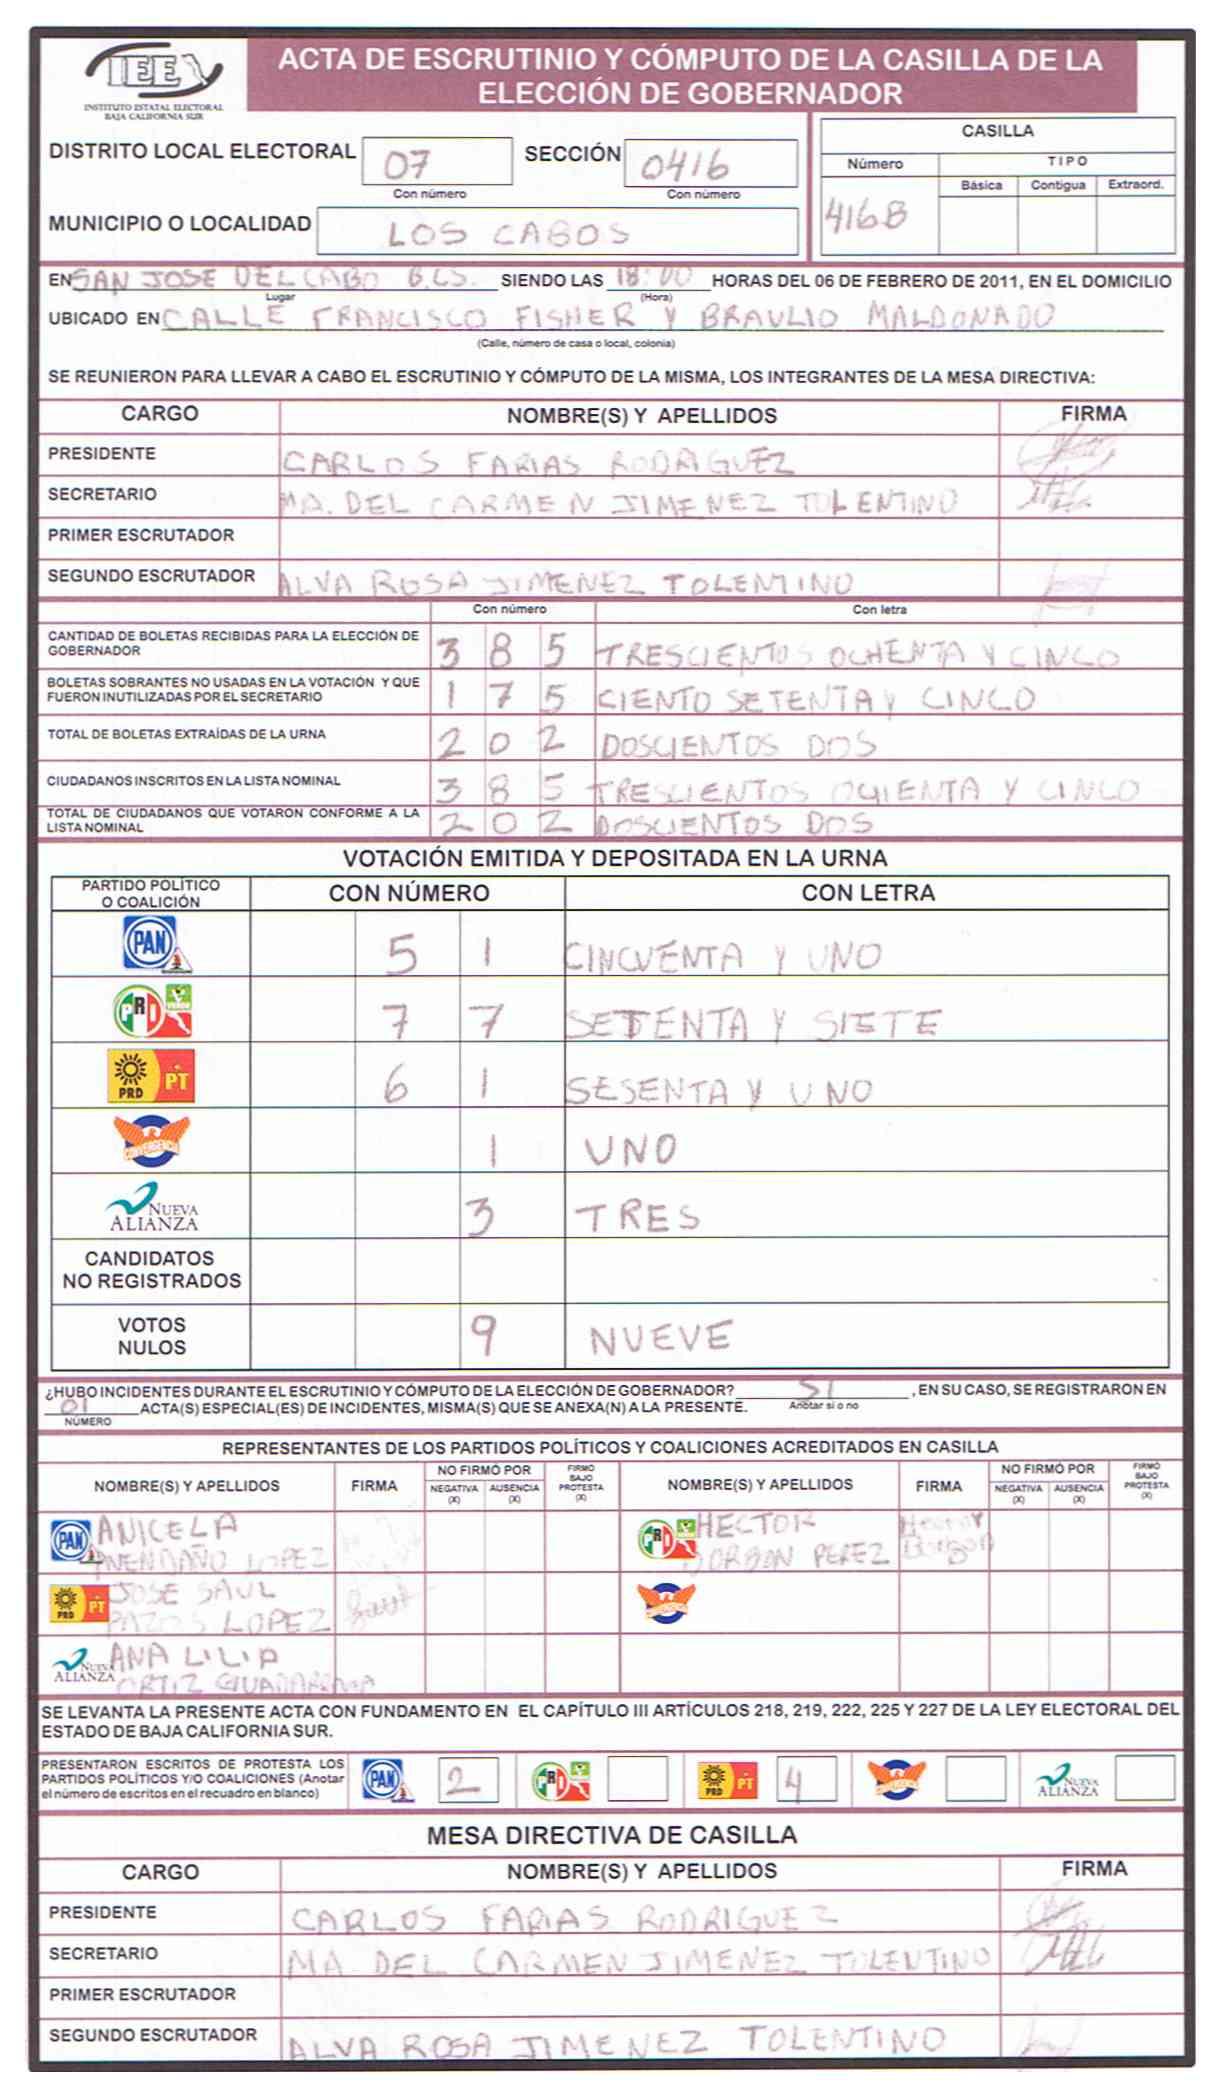 IEE
INSTITUTO ESTATAL ELECTORAL
BAJA CALIFORNIA SUR
ACTA DE ESCRUTINIO Y CÓMPUTO DE LA CASILLA DE LA
ELECCIÓN DE GOBERNADOR
DISTRITO LOCAL ELECTORAL 07 SECCIÓN 0416
Con número Con número
MUNICIPIO O LOCALIDAD LOS CABOS
CASILLA
Número TIPO
Básica Contigua Extraord.
416B
EN SAN JOSE DEL CABO B.C.S. SIENDO LAS 18:00 HORAS DEL 06 DE FEBRERO DE 2011, EN EL DOMICILIO
Lugar (Hora)
UBICADO EN CALLE FRANCISCO FISHER Y BRAULIO MALDONADO
(Calle, número de casa o local, colonia)
SE REUNIERON PARA LLEVAR A CABO EL ESCRUTINIO Y CÓMPUTO DE LA MISMA, LOS INTEGRANTES DE LA MESA DIRECTIVA:
CARGO NOMBRE(S) Y APELLIDOS FIRMA
PRESIDENTE CARLOS FARIAS RODRIGUEZ
SECRETARIO MA. DEL CARMEN JIMENEZ TOLENTINO
PRIMER ESCRUTADOR
SEGUNDO ESCRUTADOR ALVA ROSA JIMENEZ TOLENTINO
Con número Con letra
CANTIDAD DE BOLETAS RECIBIDAS PARA LA ELECCIÓN DE
GOBERNADOR 3 8 5 TRESCIENTOS OCHENTA Y CINCO
BOLETAS SOBRANTES NO USADAS EN LA VOTACIÓN Y QUE
FUERON INUTILIZADAS POR EL SECRETARIO 1 7 5 CIENTO SETENTA Y CINCO
TOTAL DE BOLETAS EXTRAÍDAS DE LA URNA 2 0 2 DOSCIENTOS DOS
CIUDADANOS INSCRITOS EN LA LISTA NOMINAL 3 8 5 TRESCIENTOS OCHENTA Y CINCO
TOTAL DE CIUDADANOS QUE VOTARON CONFORME A LA
LISTA NOMINAL 2 0 2 DOSCIENTOS DOS
VOTACIÓN EMITIDA Y DEPOSITADA EN LA URNA
PARTIDO POLÍTICO
O COALICIÓN CON NÚMERO CON LETRA
PAN 5 1 CINCUENTA Y UNO
PRI VERDE 7 7 SETENTA Y SIETE
PRD PT 6 1 SESENTA Y UNO
CONVERGENCIA 1 UNO
NUEVA ALIANZA 3 TRES
CANDIDATOS
NO REGISTRADOS
VOTOS
NULOS 9 NUEVE
¿HUBO INCIDENTES DURANTE EL ESCRUTINIO Y CÓMPUTO DE LA ELECCIÓN DE GOBERNADOR? SI , EN SU CASO, SE REGISTRARON EN
Anotar si o no
01 ACTA(S) ESPECIAL(ES) DE INCIDENTES, MISMA(S) QUE SE ANEXA(N) A LA PRESENTE.
NÚMERO
REPRESENTANTES DE LOS PARTIDOS POLÍTICOS Y COALICIONES ACREDITADOS EN CASILLA
NOMBRE(S) Y APELLIDOS FIRMA NO FIRMÓ POR NEGATIVA (X) AUSENCIA (X) FIRMÓ BAJO PROTESTA (X) NOMBRE(S) Y APELLIDOS FIRMA NO FIRMÓ POR NEGATIVA (X) AUSENCIA (X) FIRMÓ BAJO PROTESTA (X)
PAN ANICELA PRI HECTOR Hector
AVENDAÑO LOPEZ BORBON PEREZ Borbon
PRD PT JOSE SAUL CONVERGENCIA
PAZOS LOPEZ
NUEVA ALIANZA ANA LILIA
ORTIZ GUADARRAMA
SE LEVANTA LA PRESENTE ACTA CON FUNDAMENTO EN EL CAPÍTULO III ARTÍCULOS 218, 219, 222, 225 Y 227 DE LA LEY ELECTORAL DEL
ESTADO DE BAJA CALIFORNIA SUR.
PRESENTARON ESCRITOS DE PROTESTA LOS
PARTIDOS POLÍTICOS Y/O COALICIONES (Anotar
el número de escritos en el recuadro en blanco) PAN 2 PRI PRD PT 4 CONVERGENCIA NUEVA ALIANZA
MESA DIRECTIVA DE CASILLA
CARGO NOMBRE(S) Y APELLIDOS FIRMA
PRESIDENTE CARLOS FARIAS RODRIGUEZ
SECRETARIO MA DEL CARMEN JIMENEZ TOLENTINO
PRIMER ESCRUTADOR
SEGUNDO ESCRUTADOR ALVA ROSA JIMENEZ TOLENTINO